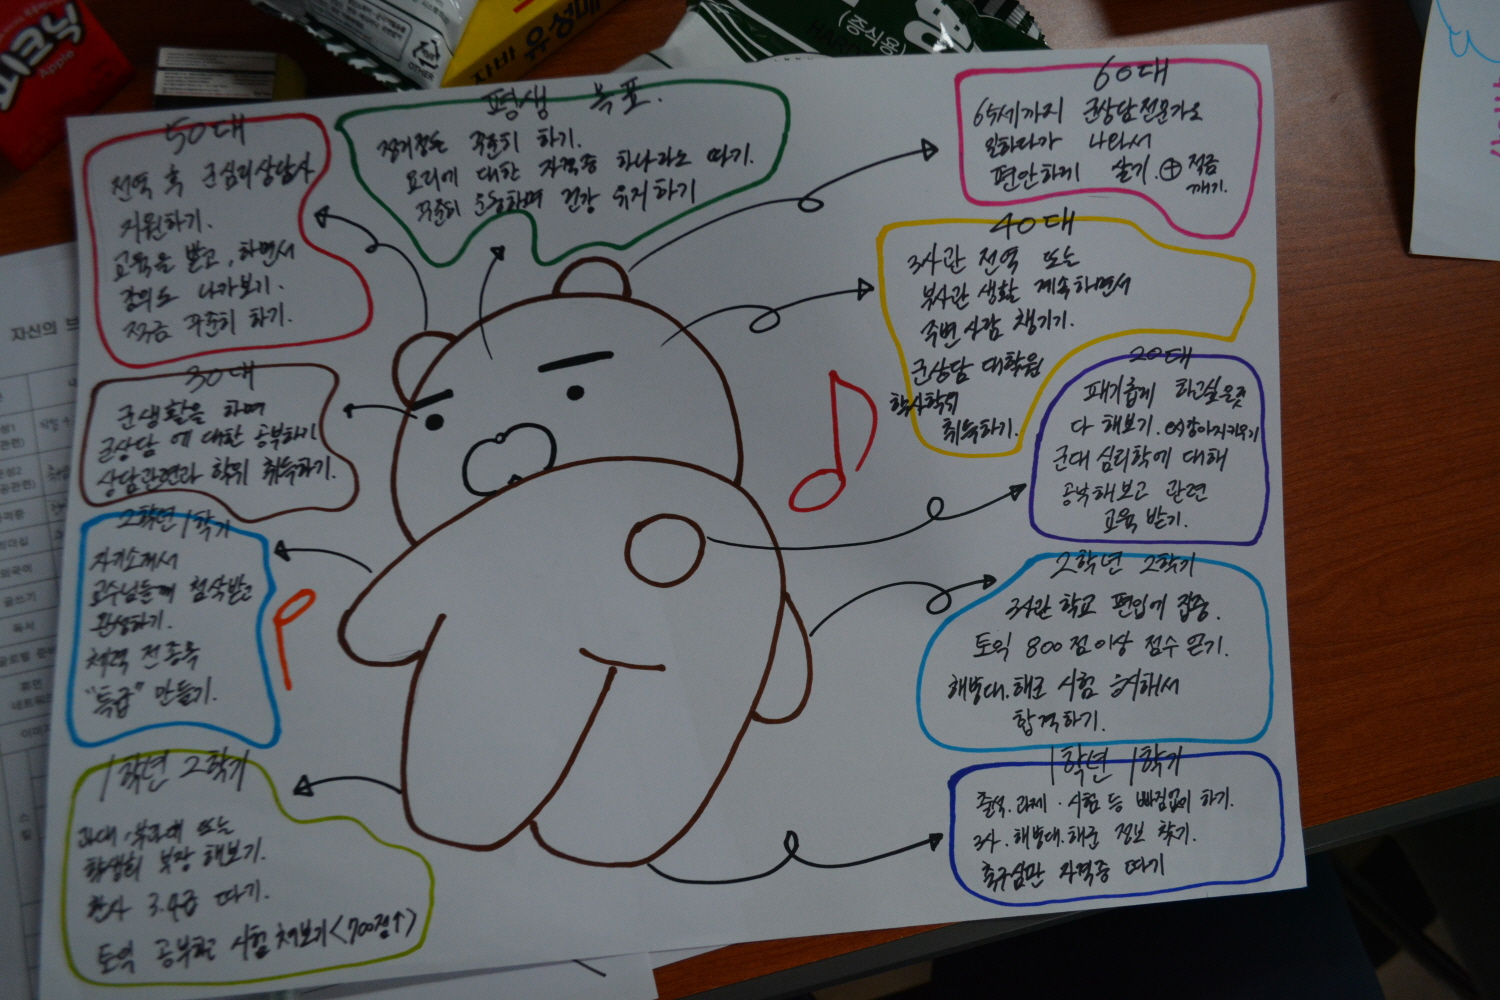 평생 목표.
꾸준히 하기.
요리에 대한 자격증 하나라도 따기.
꾸준히 운동하며 건강 유지하기
60대
65세까지 군상담전문가로
일하다가 나와서
편안하게 살기. ⊕ 적금
깨기.
50대
전역 후 군심리상담사
지원하기.
교육을 받고, 하면서
강의도 나가보기.
적금 꾸준히 하기.
40대
3사관 전역 또는
부사관 생활 계속하면서
주변사람 챙기기.
군상담 대학원
학사학위
취득하기.
30대
군생활을 하며
군상담에 대한 공부하기
상담관련과 학위 취득하기.
20대
패기롭게 하고싶은것
다 해보기.
군대 심리학에 대해
공부해보고 관련
교육 받기.
2학년 1학기
자기소개서
교수님들께 첨삭받고
완성하기.
체력 전종목
"특급" 만들기.
2학년 2학기
3사관학교 편입에 집중.
토익 800점이상 점수 얻기.
해병대.해군 시험 응시해서
합격하기.
1학년 2학기
과대, 부과대 또는
학생회 부장 해보기.
한사 3.4급 따기.
토익 공부하고 시험쳐보기<700점↑>
1학년 1학기
출석.과제.시험 등 빠짐없이 하기.
3사.해병대.해군 정보 찾기.
축구심판 자격증 따기
자신의
Apple
OTHER
유성매
(증식용)